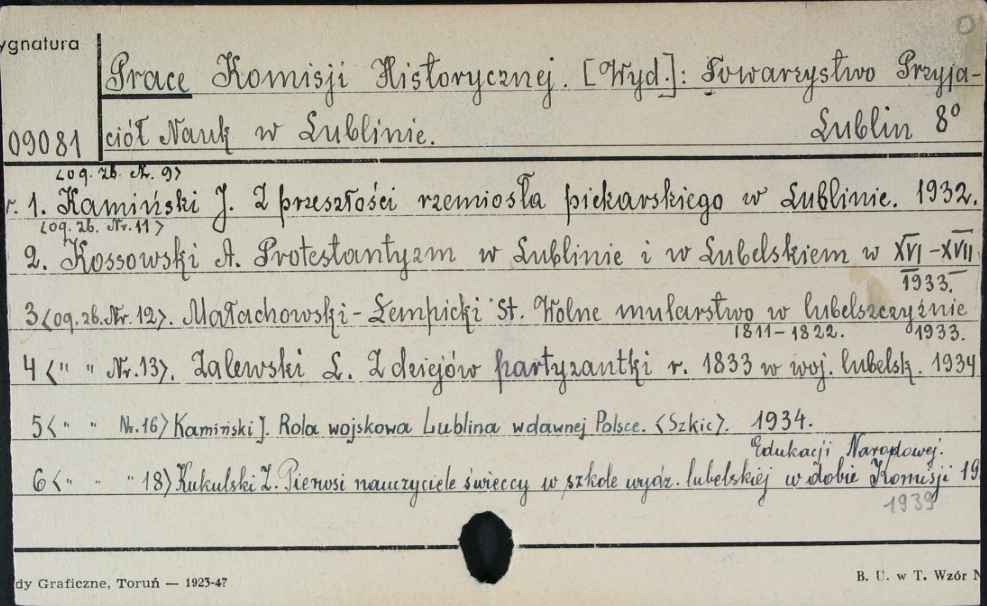 ygnatura
Prace Komisji Historycznej. [Wyd.]: Towarzystwo Przyja-
09081 ciół Nauk w Lublinie. Lublin 8°
<og. zb. Nr. 9>
r. 1. Kamiński J. Z przeszłości rzemiosła piekarskiego w Lublinie. 1932.
<og. zb. Nr. 11>
2. Kossowski A. Protestantyzm w Lublinie i w Lubelskiem w XVI-XVII
1933.
3 <og. zb. Nr. 12>. Małachowski-Łempicki St. Wolne mularstwo w lubelszczyźnie
1811-1822. 1933.
4 <" " Nr. 13>. Zalewski L. Z dziejów partyzantki r. 1833 w woj. lubelsk. 1934
5 <" " Nr. 16> Kamiński J. Rola wojskowa Lublina w dawnej Polsce. <Szkic>. 1934.
Edukacji Narodowej.
6 <" " " 18> Kukulski Z. Pierwsi nauczyciele świeccy w szkole wydz. lubelskiej w dobie Komisji 19
1939
dy Graficzne, Toruń — 1923-47
B. U. w T. Wzór N